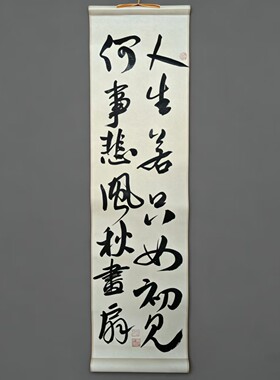 人生若只如初见
何事悲風秋畫扇